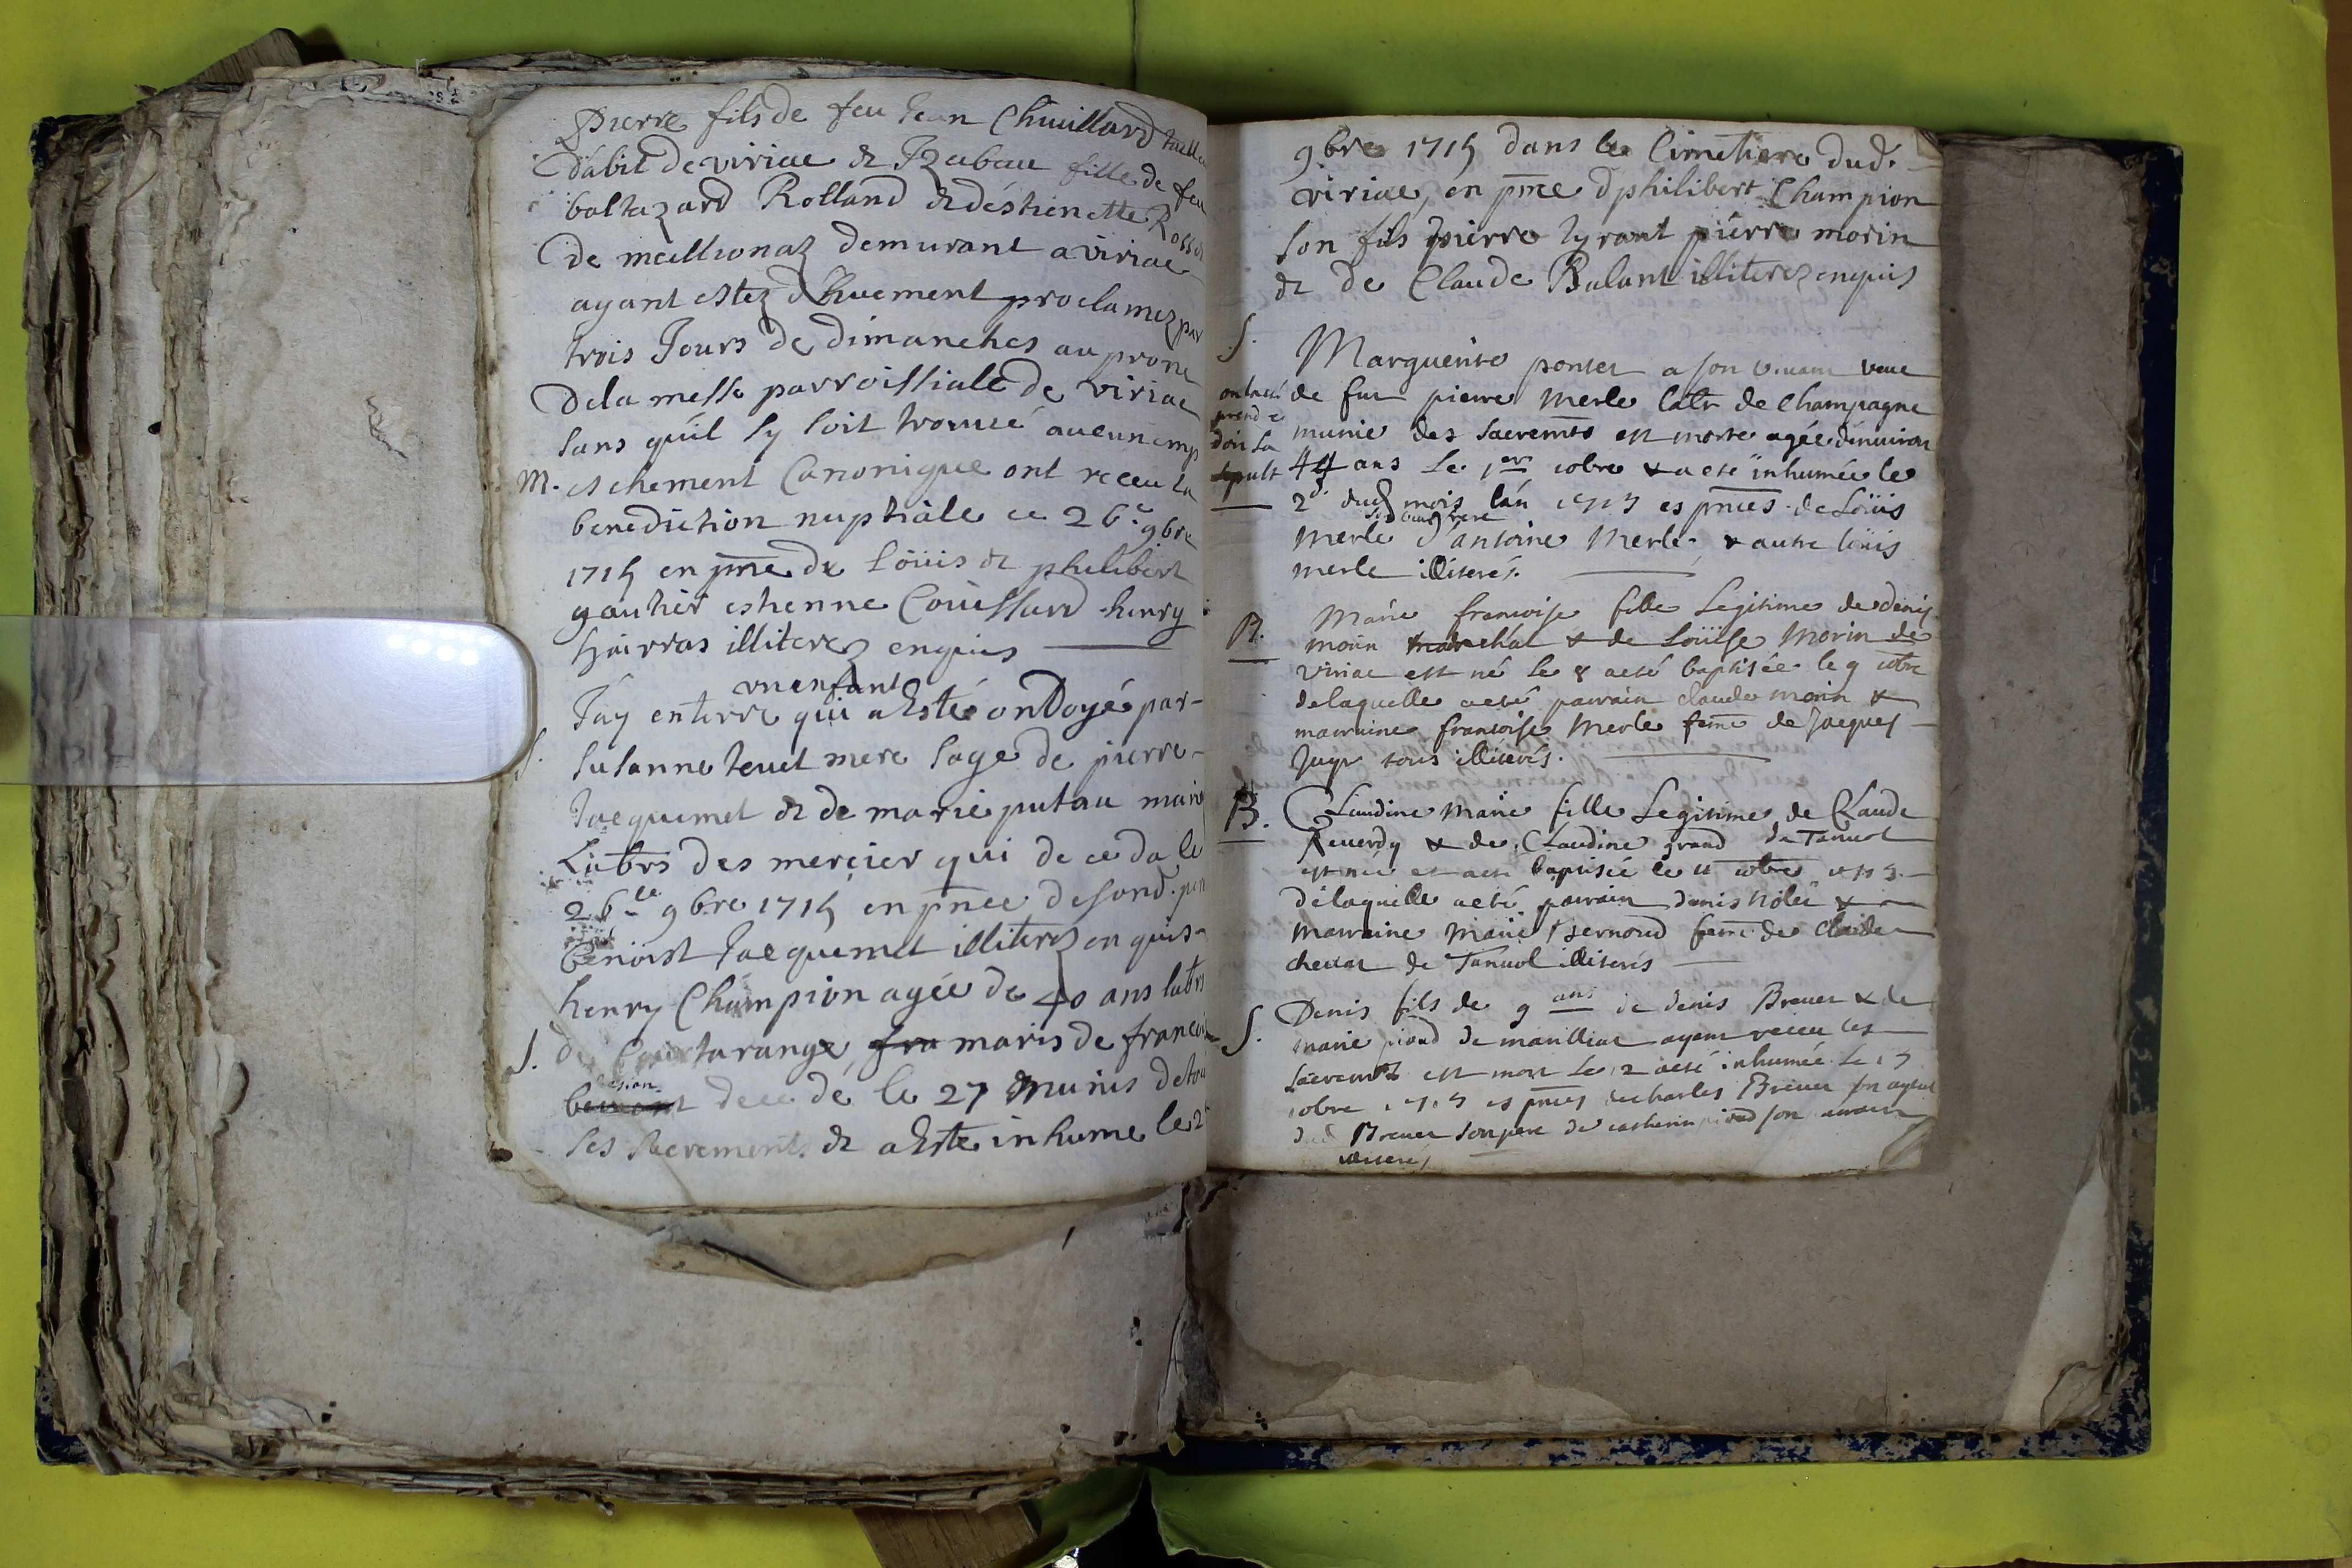 Pierre fils de feu Jean Chuillard
d'abit de viriac & Izabeau fille de feu
baltazard Rolland & déstienette
de meillionaz demurant a viriac
ayant estez dhuement proclamez par
trois Jours de dimanches au prone
dela messe parroissiale de viriac
sans qu'il sy soit trouué aucun emp
M. eschement Canonique ont receu la
benediction nuptiale ce 26e 9bre
1715 en pnce de Loüis & philibert
gauthier estienne Coüissard henry
illiterez enquis
vn enfant
J'ay enterre qui a Esté onDoyé par
S. Susanne teuet mere sage de pierre
Jacquemet & de marie putau
Labrs des mercier qui deceda le
26le 9bre 1715 en pnce
benoist Jacquemet illiterez enquis
henry Champion agée de 40 ans labrs
S. de Courtarange fra maris de
decedé le 27 munis de
ses sacrements & a Esté inhume le
9bre 1715 dans le Cimetiere dud.
viriac, en pnce d philibert Champion
son fils pierre tyrant pierre morin
& de Claude Bulant illiterez enquis
S. Marguerite a son viuant veue
de feu pierre Merle labr de Champagne
munie des sacremts est morte agée d'enuiron
44 ans le 1er & a eté inhumée le
2d dud mois l'an es pnces de Loüis
son beau frere
Merle d'antoine Merle & autre loüis
merle illiterés.
B. Marie francoise fille Legitime de denis
morin & de Loüise Morin de
viriac est né le 8 a eté baptisée le 9
delaquelle a eté parrain claude morin &
marraine francoise Merle feme de Jacques
tous illiterés.
B. Claudine Marie fille Legitime de Claude
Reuerdy & de Claudine grand de Tanuol
est née et a eté baptisée le 11
delaquelle a eté parrain denis &
marraine Marie Bernoud feme de claude
de Tanuol illiterés
S. Denis fils de 9 ans de denis Breuet & de
marie de marilliac ayant receu les
sacremts est mort le 12 a eté inhumée le 13
es pnces de charles Breuet
Breuet son pere de son